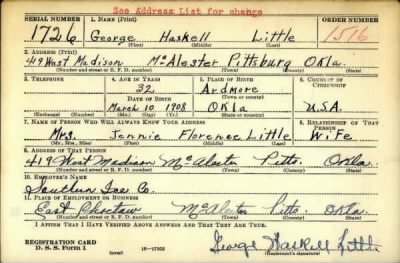 See Address List for change
SERIAL NUMBER 1. NAME (Print) ORDER NUMBER
1726 George Haskell Little 1516
(First) (Middle) (Last)
2. ADDRESS (Print)
419 West Madison McAlester Pittsburg Okla.
(Number and street or R. F. D. number) (Town) (County) (State)
3. TELEPHONE 4. AGE IN YEARS 5. PLACE OF BIRTH 6. COUNTRY OF CITIZENSHIP
32 Ardmore
DATE OF BIRTH (Town or county)
March 10 1908 Okla U.S.A.
(Exchange) (No.) (Mo.) (Day) (Yr.) (State or country)
7. NAME OF PERSON WHO WILL ALWAYS KNOW YOUR ADDRESS 8. RELATIONSHIP OF THAT PERSON
Mrs. Jennie Florence Little Wife
(Mr., Mrs., Miss) (First) (Middle) (Last)
9. ADDRESS OF THAT PERSON
419 West Madison McAlester Pitts. Okla.
(Number and street or R. F. D. number) (Town) (County) (State)
10. EMPLOYER'S NAME
Southern Ice Co.
11. PLACE OF EMPLOYMENT OR BUSINESS
East Choctaw McAlester Pitts. Okla.
(Number and street or R. F. D. number) (Town) (County) (State)
I AFFIRM THAT I HAVE VERIFIED ABOVE ANSWERS AND THAT THEY ARE TRUE.
REGISTRATION CARD
D. S. S. Form 1 16—17105 George Haskell Little
(Registrant's signature)